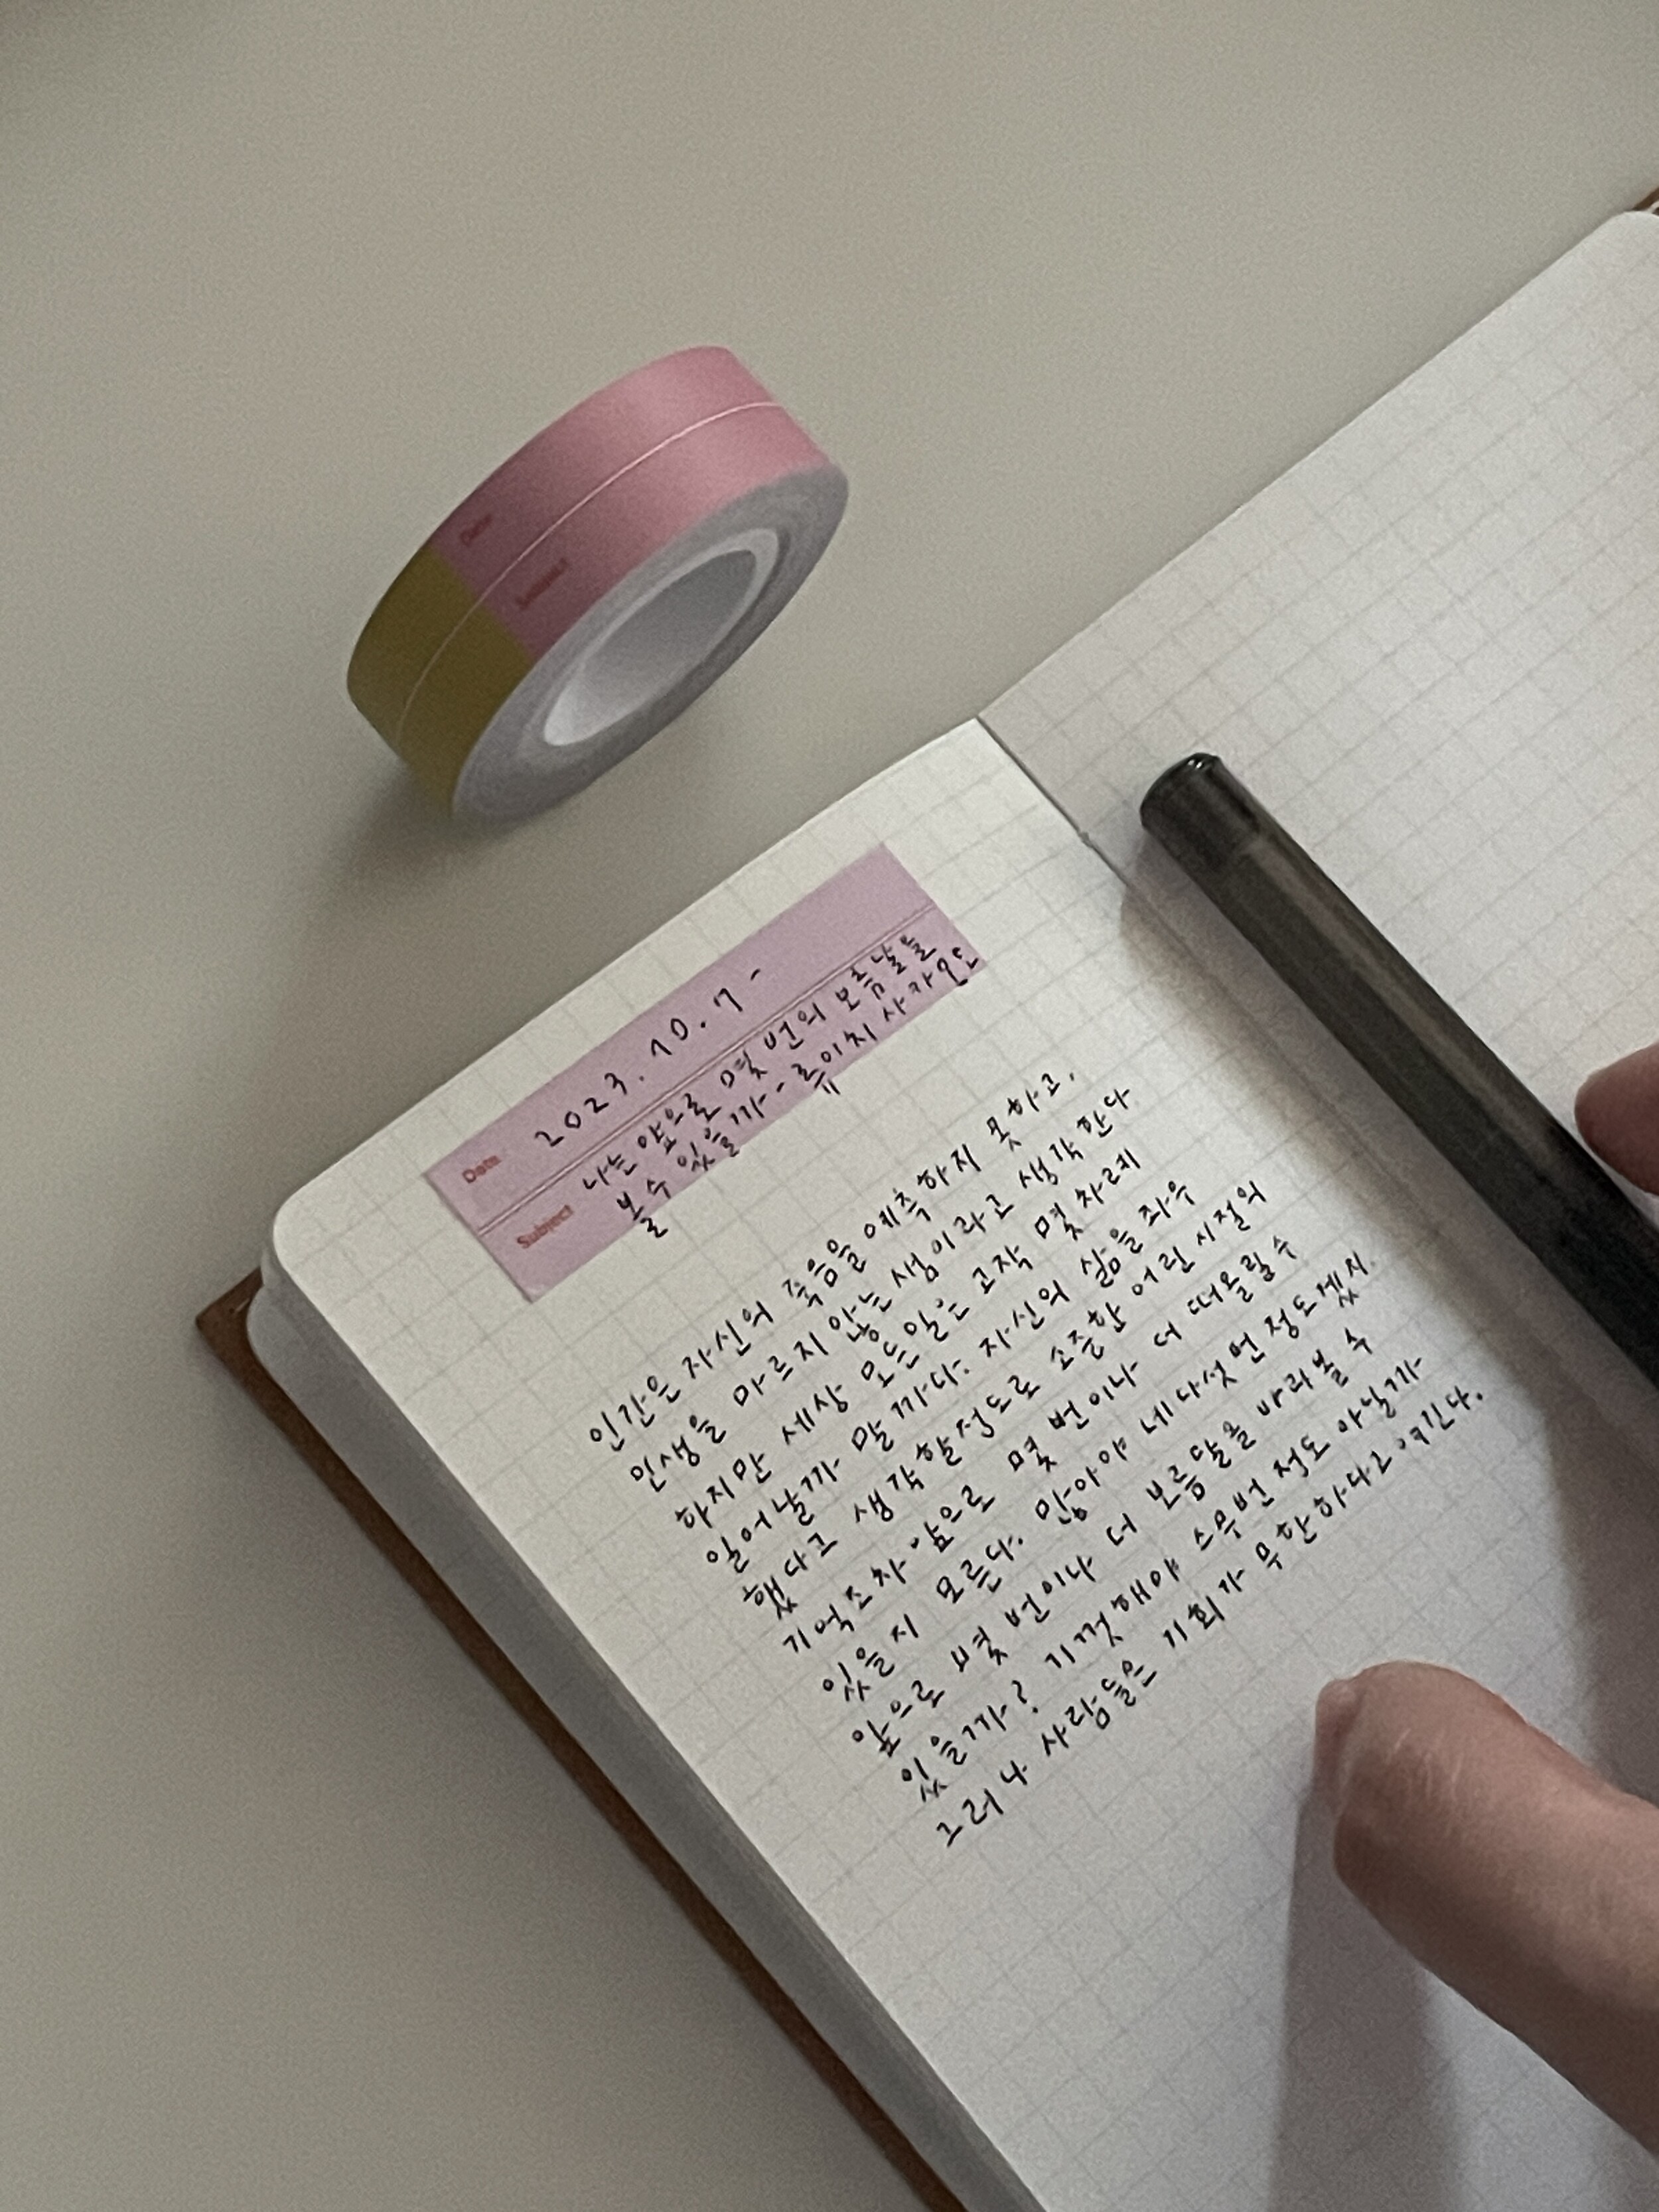 Date
Subject
Date 2023. 10. 7 -
Subject 나는 앞으로 몇 번의 보름달을
볼 수 있을까 - 류이치 사카모토
인간은 자신의 죽음을 예측하지 못하고,
인생을 마르지 않는 샘이라고 생각한다
하지만 세상 모든 일은 고작 몇 차례
일어날까 말까다. 자신의 삶을 좌우
했다고 생각할 정도로 소중한 어린 시절의
기억조차 앞으로 몇 번이나 더 떠올릴 수
있을지 모른다. 많아야 네다섯 번 정도겠지.
앞으로 몇 번이나 더 보름달을 바라볼 수
있을까? 기껏해야 스무 번 정도 아닐까
그러나 사람들은 기회가 무한하다고 여긴다.